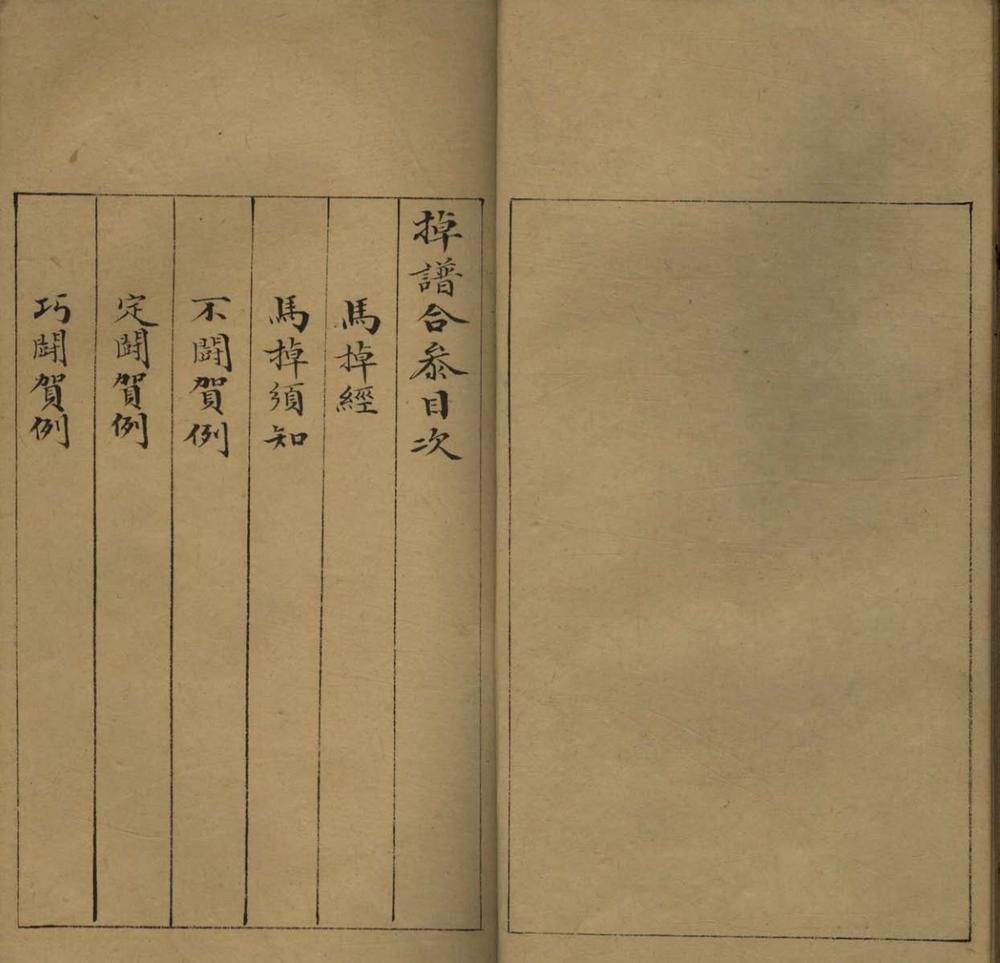 掉譜合叅目次
馬掉經
馬掉須知
不鬪賀例
定鬪賀例
巧鬪賀例